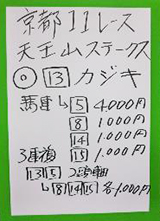 京都11レース
天王山ステークス
◎ 13 カジキ
馬連 5 4,000円
8 1000円
14 1,000円
3連複 15 1,000円
13 5 2頭軸
8 14 15 各1,000円